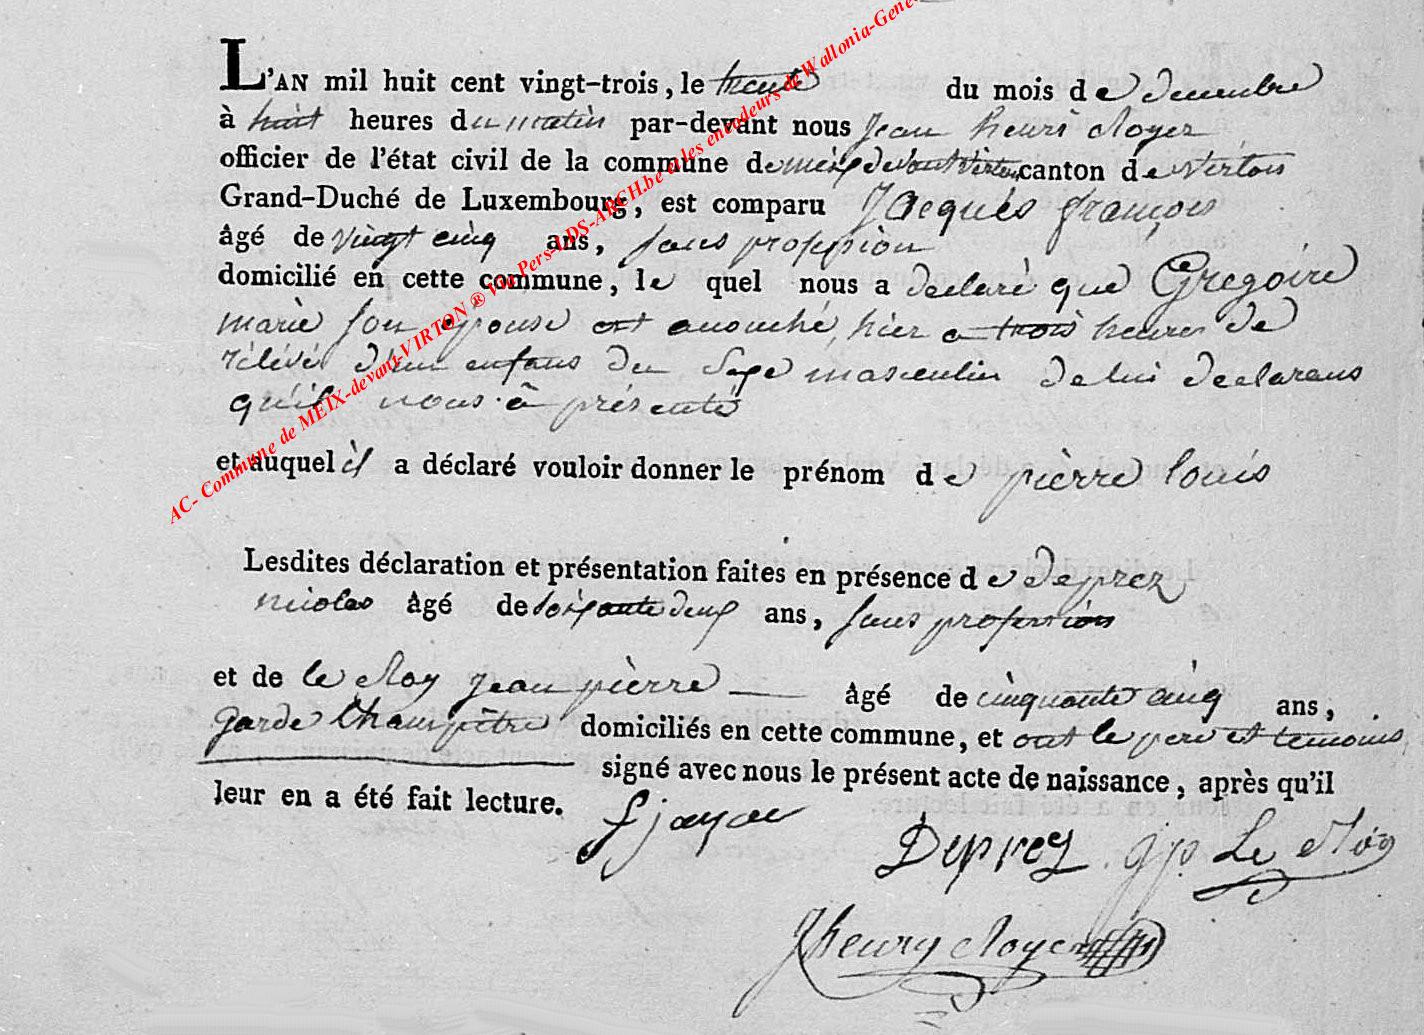 L'AN mil huit cent vingt-trois, le trente du mois de decembre
à huit heures du matin par-devant nous jean henri Noyer
officier de l'état civil de la commune de meix devant virton canton de virton
Grand-Duché de Luxembourg, est comparu Jacques françois
âgé de vingt cinq ans, sans profession
domicilié en cette commune, le quel nous a declaré que Gregoire
marie son epouse est acouché, hier a trois heures de
rélévée d'un enfans du sexe masculin de lui declarans
qu'il nous à présenté
et auquel il a déclaré vouloir donner le prénom de pièrre louis
Lesdites déclaration et présentation faites en présence de deprez
nicolas âgé de soixante deux ans, sans profession
et de le Roy jean pièrre âgé de cinquante cinq ans,
garde Champêtre domiciliés en cette commune, et ont le pere et temoins
signé avec nous le présent acte de naissance, après qu'il
leur en a été fait lecture.
Deprez j p Le Roy
J henry Noyer
AC- Commune de MEIX-devant-VIRTON ® Via Pers-LDS-ARCH.be et les encodeurs de Wallonia-Gene